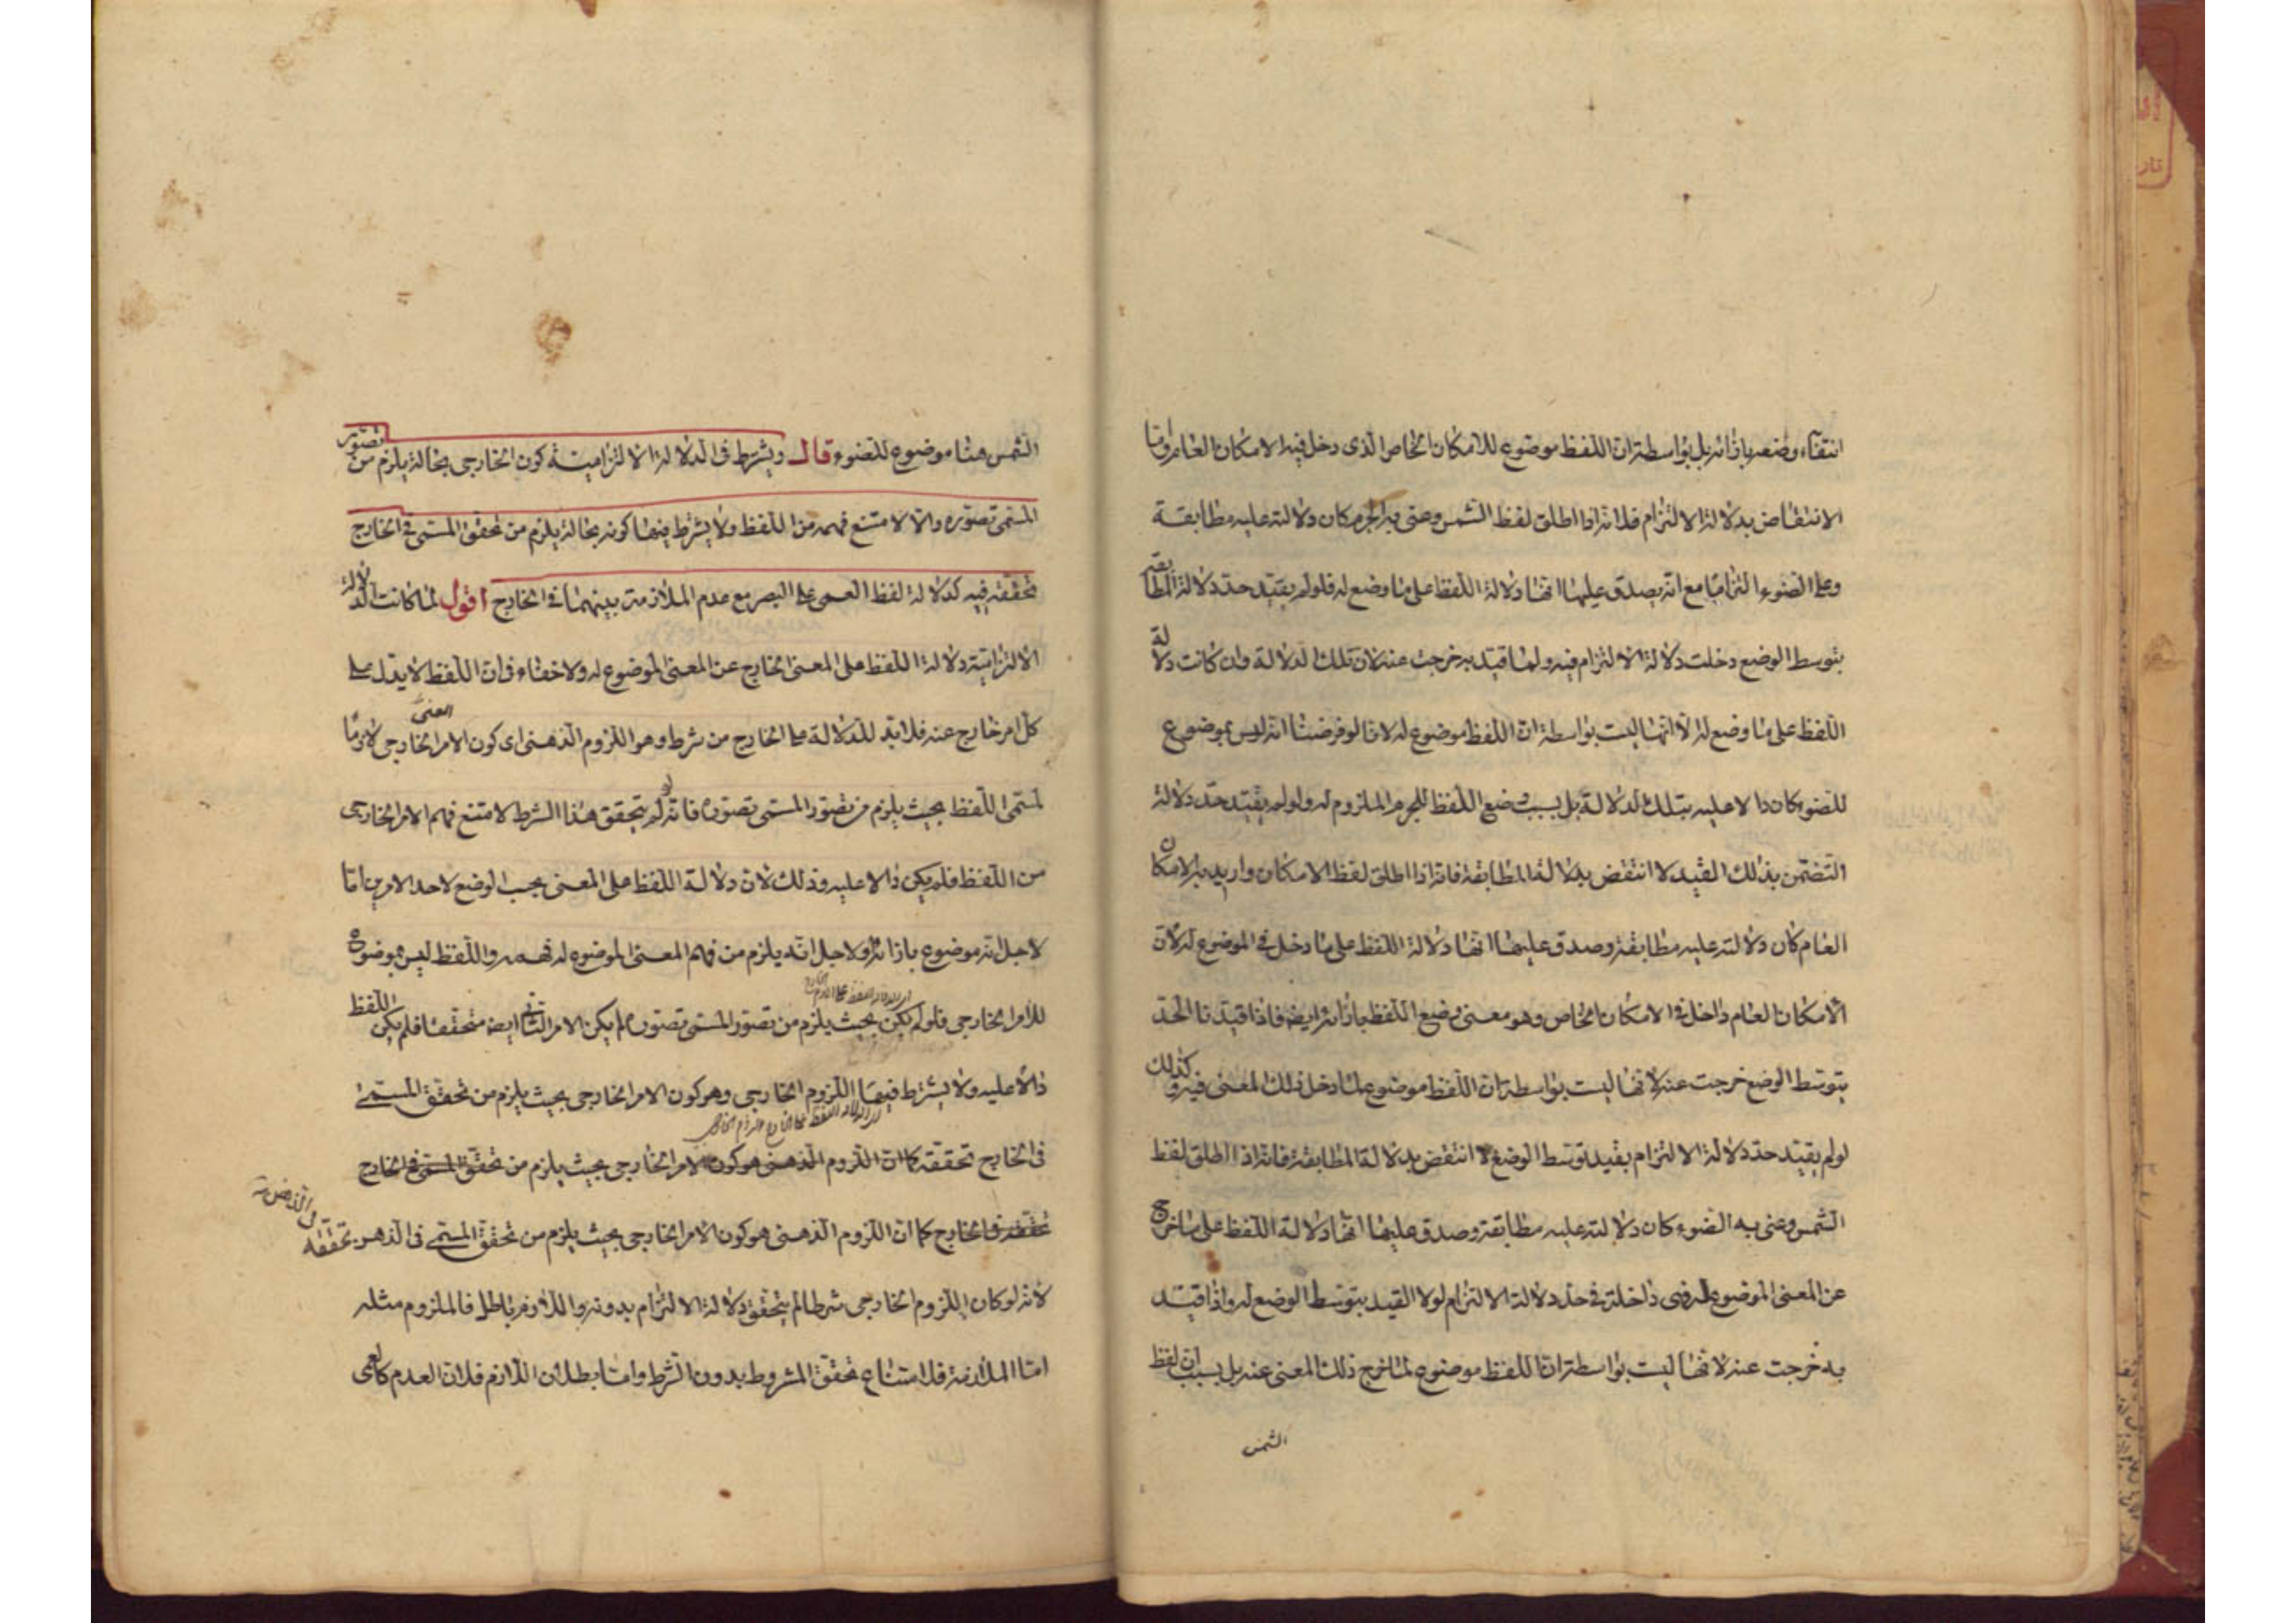 انتفاء وضعه بازائه بل بواسطة ان اللفظ موضوع للامكان الخاص الذى دخل فيه الامكان العام واما
الانتقاض بدلالة الالتزام فلانه اذا اطلق لفظ الشمس وعنى به الجرم كان دلالته عليه مطابقة
وعلى الضوء التزاما مع انه يصدق عليها انها دلالة اللفظ على ما وضع له فلو لم يقيد حد دلالة المطابقة
بتوسط الوضع دخلت دلالة الالتزام فيه ولما قيد به خرجت عنه لان تلك الدلالة وان كانت دلالة
اللفظ على ما وضع له الا انها ليست بواسطة ان اللفظ موضوع له لانا لو فرضنا انه ليس بموضوع
للضوء كان دالا عليه بتلك الدلالة بل بسبب وضع اللفظ للجرم الملزوم له ولو لم يقيد حد دلالة
التضمن بذلك القيد لانتقض بدلالة المطابقة فانه اذا اطلق لفظ الامكان واريد به الامكان
العام كان دلالته عليه مطابقة وصدق عليها انها دلالة اللفظ على ما دخل فى الموضوع له لان
الامكان العام داخل فى الامكان الخاص وهو معنى وضع اللفظ بازائه ايضا فاذا قيدنا الحد
بتوسط الوضع خرجت عنه لانها ليست بواسطة ان اللفظ موضوع لما دخل ذلك المعنى فيه وكذلك
لو لم يقيد حد دلالة الالتزام بقيد توسط الوضع لانتقض بدلالة المطابقة فانه اذا اطلق لفظ
الشمس وعنى به الضوء كان دلالته عليه مطابقة وصدق عليها انها دلالة اللفظ على ما خرج
عن المعنى الموضوع له فهى داخلة فى حد دلالة الالتزام لولا القيد بتوسط الوضع له واذا قيد
به خرجت عنه لانها ليست بواسطة ان اللفظ موضوع لما خرج ذلك المعنى عنه بل بسبب ان لفظ
الشمس
الشمس هنا موضوع للضوء قال ويشترط فى الدلالة الالتزامية كون الخارجى بحالة يلزم من تصور
المسمى تصوره والا لامتنع فهمه من اللفظ ولا يشترط فيها كونه بحالة يلزم من تحقق المسمى فى الخارج
تحققه فيه كدلالة لفظ العمى على البصر مع عدم الملازمة بينهما فى الخارج اقول لما كانت الدلالة
الالتزامية دلالة اللفظ على المعنى الخارج عن المعنى الموضوع له ولا خفاء فى ان اللفظ لا يدل على
كل امر خارج عنه فلابد للدلالة على الخارج من شرط وهو اللزوم الذهنى اى كون الامر الخارجى لازما
لمسمى اللفظ بحيث يلزم من تصور المسمى تصوره فانه لو لم يتحقق هذا الشرط لامتنع فهم الامر الخارجى
من اللفظ فلم يكن دالا عليه وذلك لان دلالة اللفظ على المعنى بحسب الوضع لاحد الامرين اما
لاجل انه موضوع بازائه او لاجل انه يلزم من فهم المعنى الموضوع له فهمه واللفظ ليس بموضوع
للامر الخارجى فلو لم يكن بحيث يلزم من تصور المسمى تصوره لم يكن الامر الثانى ايضا متحققا فلم يكن اللفظ
دالا عليه ولا يشترط فيها اللزوم الخارجى وهو كون الامر الخارجى بحيث يلزم من تحقق المسمى
فى الخارج تحققه كما ان اللزوم الذهنى هو كون الامر الخارجى بحيث يلزم من تحقق المسمى فى الخارج
تحققه فى الخارج كما ان اللزوم الذهنى هو كون الامر الخارجى بحيث يلزم من تحقق المسمى فى الذهن تحققه
لانه لو كان اللزوم الخارجى شرطا لم يتحقق دلالة الالتزام بدونه واللازم باطل فالملزوم مثله
اما الملازمة فلامتناع تحقق المشروط بدون الشرط واما بطلان اللازم فلان العدم كالعمى